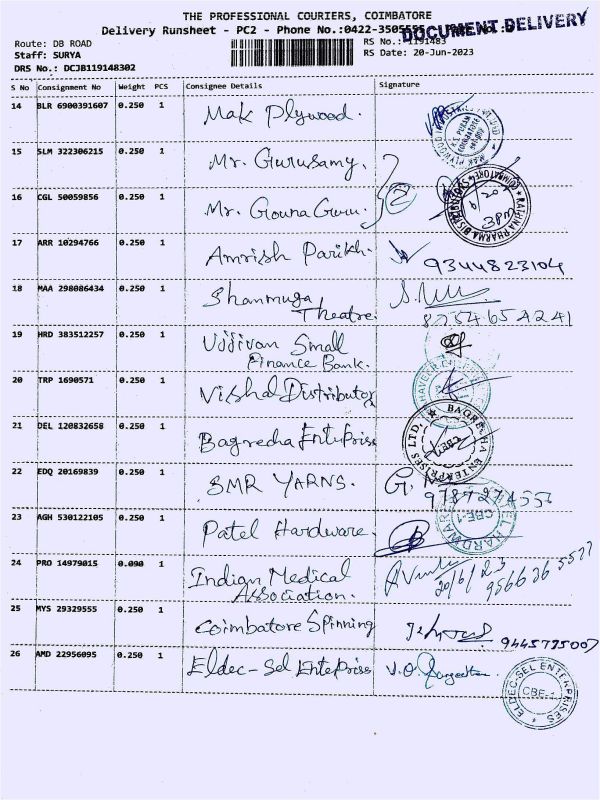 THE PROFESSIONAL COURIERS, COIMBATORE
Delivery Runsheet - PC2 - Phone No.:0422-
DOCUMENT DELIVERY
Route: DB ROAD
RS No.: 1191483
Staff: SURYA
RS Date: 20-Jun-2023
DRS No.: DCJB119148302
S No Consignment No Weight PCS Consignee Details Signature
14 BLR 6900391607 0.250 1 Mak Plywood.
15 SLM 322306215 0.250 1 Mr. Gurusamy.
16 CGL 50059856 0.250 1 Mr. Gouna Guru. 2
3PM
17 ARR 10294766 0.250 1 Amrish Parikh. 9344823104
18 MAA 298086434 0.250 1 Shanmuga
Theatre. 8754654241
19 HRD 383512257 0.250 1 Ujjivan Small
Finance Bank.
20 TRP 1690571 0.250 1 Vishal Distributor
21 DEL 120832658 0.250 1 Bagrecha Enterprise
BAGRECHA ENTERPRISES LTD. CBE-1
22 EDQ 20169839 0.250 1 SMR YARNS.
23 AGH 530122105 0.250 1 Patel Hardware.
CBE-1
24 PRO 14979015 0.090 1 Indian Medical
Association. 20/6/23
25 MYS 29329555 0.250 1 Coimbatore Spinning
26 AMD 22956095 0.250 1 Eldec-Sel Enteprise
ELDEC-SEL ENTERPRISES CBE-1